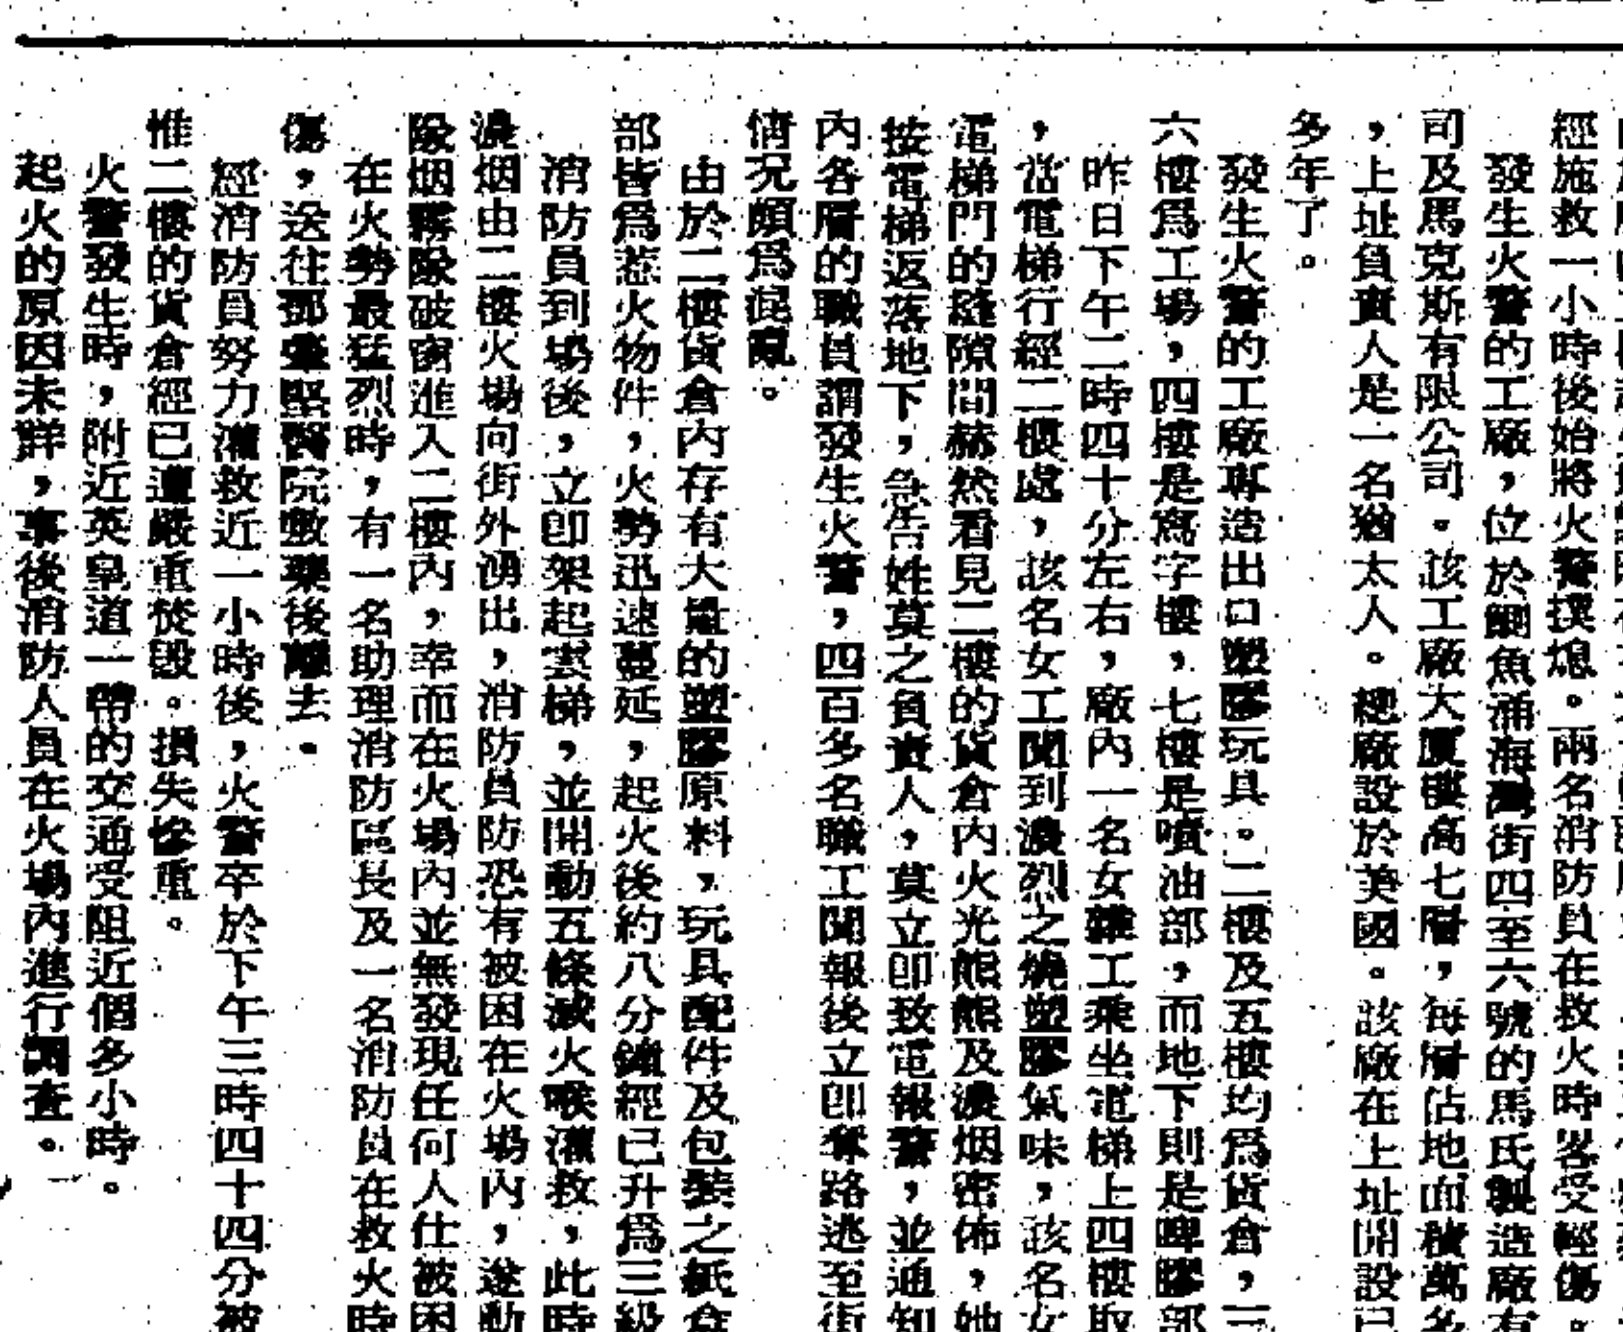 經施救一小時後始將火警撲熄。兩名消防員在救火時畧受輕傷。
發生火警的工廠，位於鰂魚涌海灣街四至六號的馬氏製造廠有
司及馬克斯有限公司。該工廠大廈樓高七層，每層佔地面積萬多
，上址負責人是一名猶太人。總廠設於美國。該廠在上址開設已
多年了。
發生火警的工廠專造出口塑膠玩具。二樓及五樓均爲貨倉，三
六樓爲工場，四樓是寫字樓，七樓是噴油部，而地下則是啤膠部
昨日下午二時四十分左右，廠內一名女雜工乘坐電梯上四樓取
，當電梯行經二樓處，該名女工聞到濃烈之燒塑膠氣味，該名女
電梯門的縫隙間赫然看見二樓的貨倉內火光熊熊及濃烟密佈，她
按電梯返落地下，急告姓莫之負責人，莫立即致電報警，並通知
內各層的職員謂發生火警，四百多名職工聞報後立即奪路逃至街
情况頗爲混亂。
由於二樓貨倉內存有大量的塑膠原料，玩具配件及包裝之紙盒
部皆爲惹火物件，火勢迅速蔓延，起火後約八分鐘經已升爲三級
消防員到場後，立即架起雲梯，並開動五條滅火喉灌救，此時
濃烟由二樓火場向街外湧出，消防員防恐有被困在火場內，遂動
隊烟霧隊破窗進入二樓內，幸而在火場內並無發現任何人仕被困
在火勢最猛烈時，有一名助理消防區長及一名消防員在救火時
傷，送往鄧肇堅醫院敷藥後離去。
經消防員努力灌救近一小時後，火警卒於下午三時四十四分被
惟二樓的貨倉經已遭嚴重焚毀。損失慘重。
火警發生時，附近英皇道一帶的交通受阻近個多小時。
起火的原因未詳，事後消防人員在火場內進行調查。